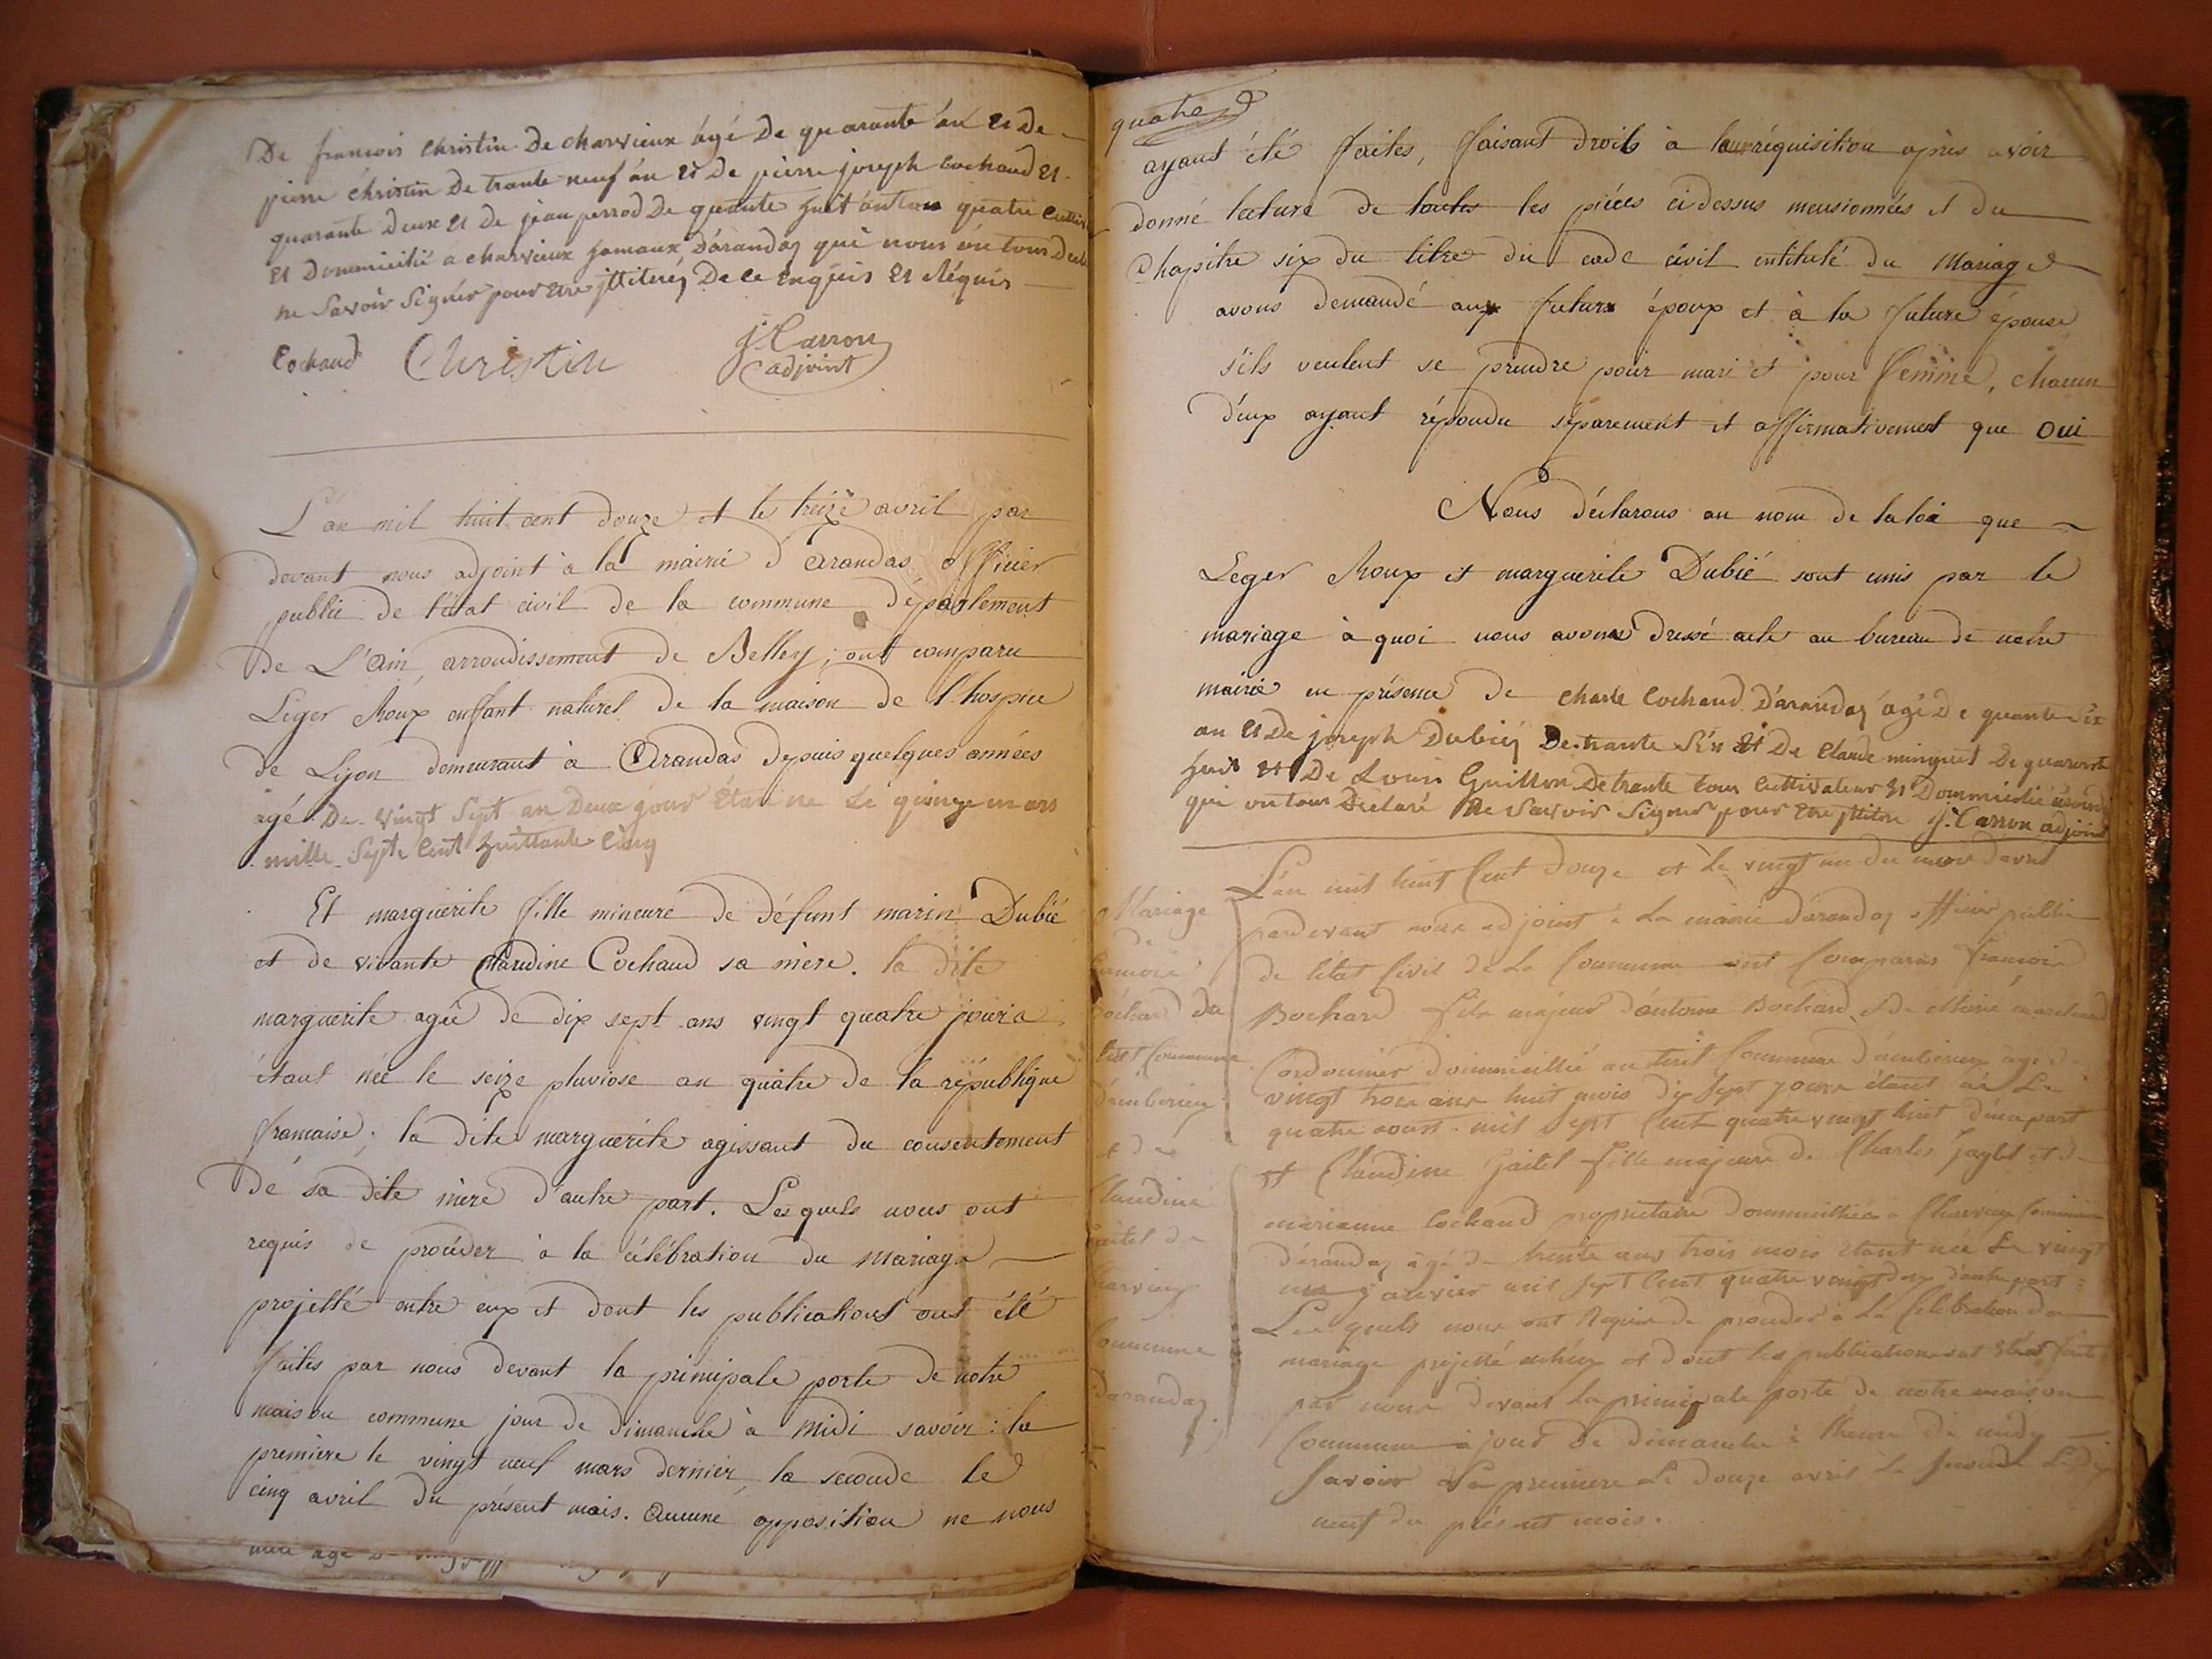 De francois christin De charvieux âgé De quarante án et De
pierre christin De trante neuf án et De pierre joseph Cochaud et
quarante Deux et De jean perrod De quarante huit án tous quatre
et Dommicilié a charvieux hamaux Darandaz qui nous ón tous
ne Savoir Signér pour être illiteréz De ce Enquis et Réquis
Cochaud Christin J. Carron
adjoint
L'an mil huit cent douze et le treize avril par
devant nous adjoint à la mairie d'arandas officier
public de l'état civil de la commune département
de L'ain, arrondissement de Belley; ont comparu
Leger Roux enfant naturel de la maison de l'hospice
de Lyon demeurant à Arandas depuis quelques années
agé De vingt Sept an Deux jour Étan ne Lé quinze mars
mille Sept Cent huittante Cinq
Et marguerite fille mineure de défunt marin Dubié
et de vivante Claudine Cochaud sa mère. la dite
marguerite agée de dix sept ans vingt quatre jours
étant née le seize pluviose an quatre de la république
francaise; la dite marguerite agissant du consentement
de sa dite mère d'autre part. Lesquels nous ont
requis de procéder à la célébration du Mariage
projetté entre eux et dont les publications ont été
faites par nous devant la principale porte de notre
maison commune jour de dimanche à midi savoir: la
premiere le vingt neuf mars dernier, la seconde le
cinq avril du présent mois. Aucune opposition ne nous
quatre
ayant été faites, faisant droits à leur réquisition après avoir
donné lecture de toutes les pièces ci dessus mensionnées et du
Chapitre six du titre du code civil intitulé du Mariage
avons demandé aux futurs époux et à la future épouse
s'ils veulent se prendre pour mari et pour femme, chacun
d'eux ayant répondu séparement et affirmativement que oui
Nous déclarons au nom de la loi que
Leger Roux et marguerite Dubié sont unis par le
mariage à quoi nous avons dressé acte au bureau de notre
mairie en présence de charle Cochaud Darandaz ágé De quarante Six
an et De joseph Dubiéz De trante Six et De Claude minguet De quarante
huit et De Louis Guillon De trante tous Cultivateur et Dommicilié
qui on tous Déclaré Ne Savoir Signer pour être illitére J. Carron adjoint
Mariage
de
francoi
Bochard du
tiret Commune
dambérieu
et de
Claudine
Gaitel de
Charvieux
Commune
darandaz
L'an mil huit Cent douze et le vingt un du mois davril
pardevant nous adjoint à la mairie darandaz officier public
de l'état Civil de la Commune ont Comparus francois
Bochard fils majeur dantoine Bochard et de Marie marchand
Cordonnier dommicillié au tiret Commune d'ambérieux agé de
vingt trois ans huit mois dix sept jours étant né le
quatre aoust mil Sept Cent quatre vingt huit d'une part
et Claudine Gaitel fille majeure de Charles Gaytel et de
marianne Cochaud propriétaire dommicilliée a Charvieux Commune
darandaz agé de trente ans trois mois étant née le vingt
un janvier mil Sept Cent quatre vingt deux d'autre part:
Lesquels nous ont Requis de procéder à la Célébration du
mariage projetté entr'eux et dont les publications ont été faites
par nous devant la principale porte de notre maison
Commune à jour de dimanche à l'heure de midy
Savoir La premiere Le douze avril la Seconde Le dix
neuf du présent mois.